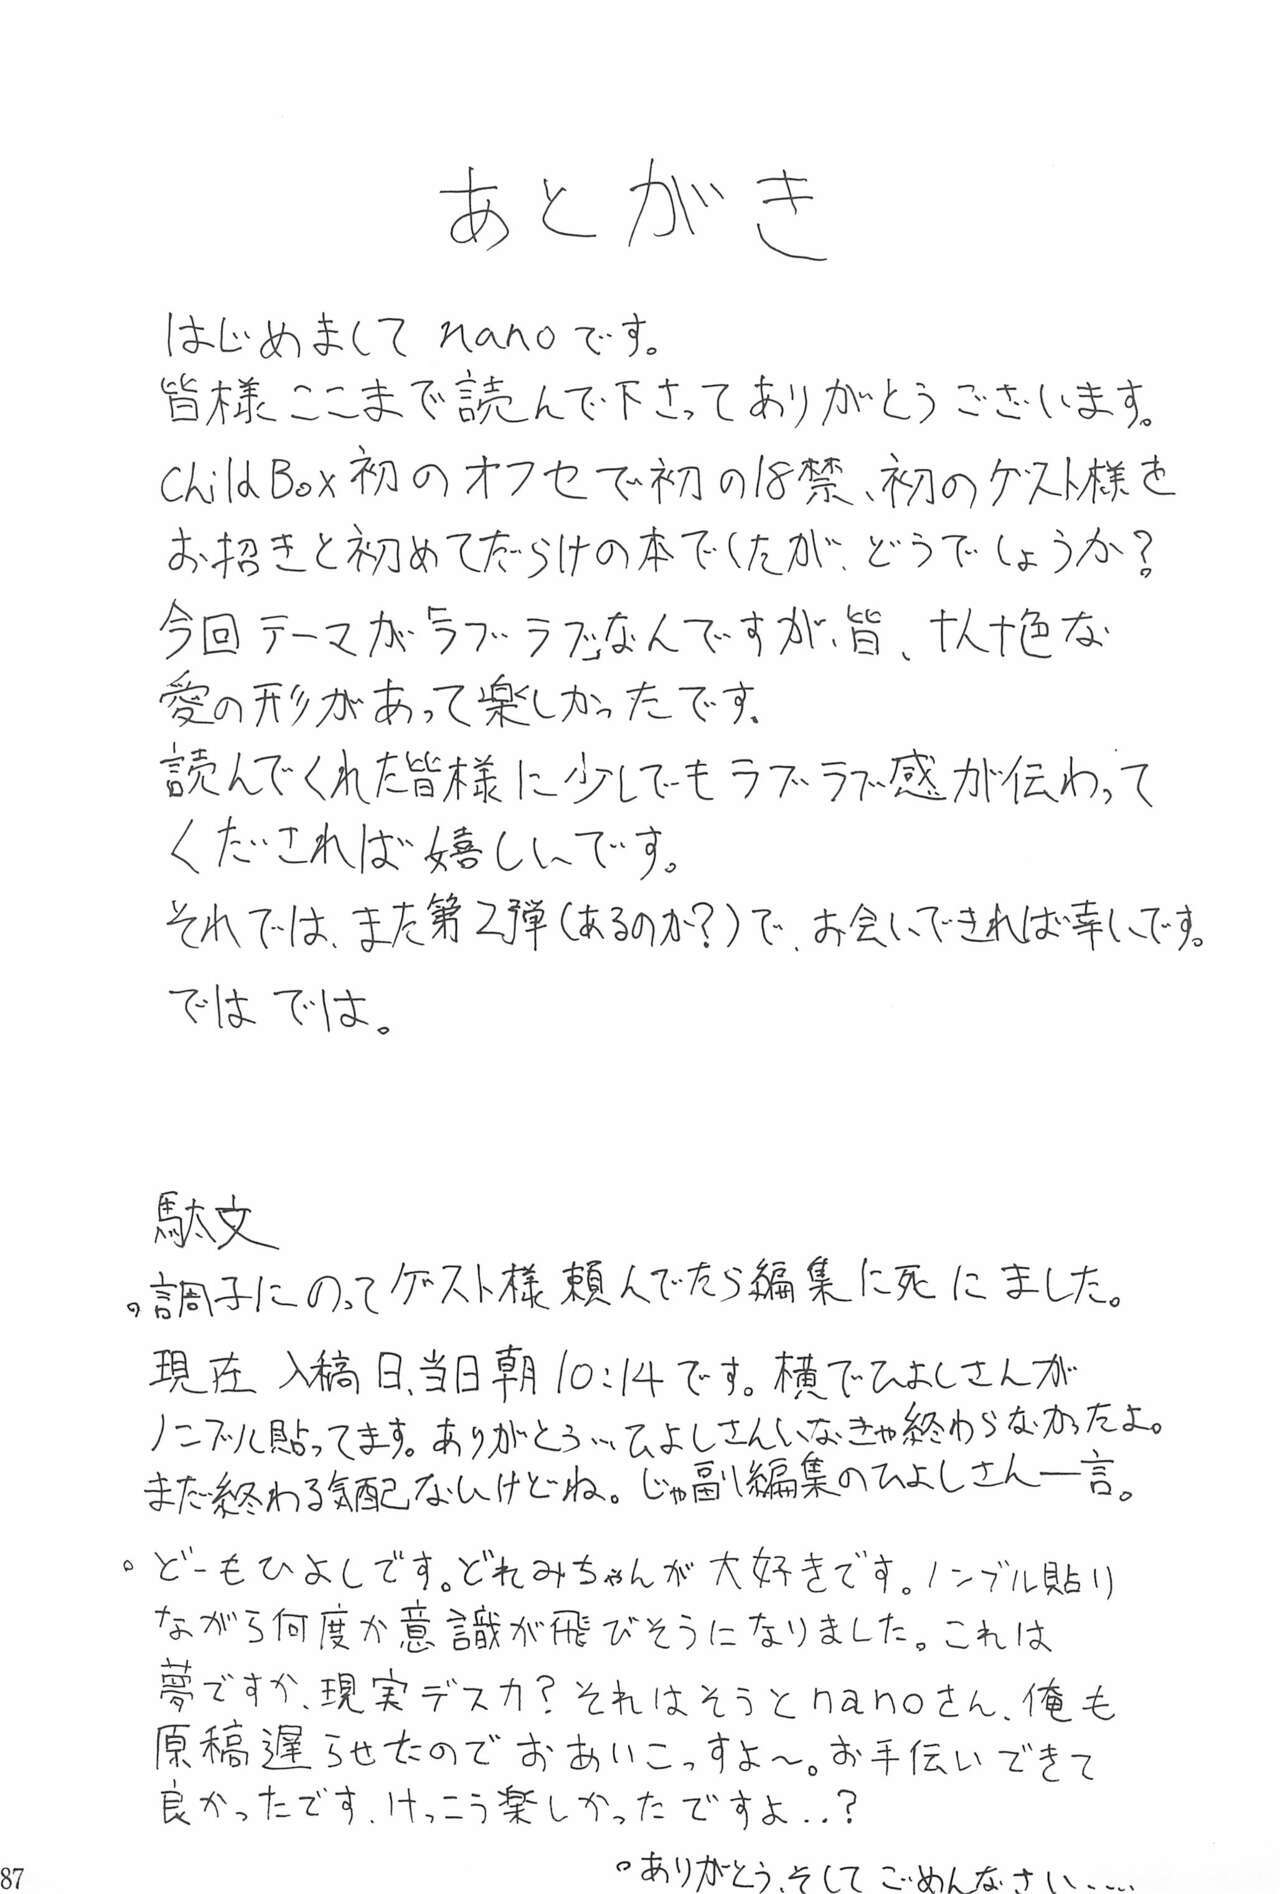 あとがき
はじめまして nanoです。
皆様ここまで読んで下さってありがとうございます。
ChildBox初のオフセで初の18禁、初のゲスト様を
お招きと初めてだらけの本でしたが、どうでしょうか?
今回テーマが「ラブラブ」なんですが、皆、十人十色な
愛の形があって楽しかったです。
読んでくれた皆様に少しでもラブラブ感が伝わって
くだされば嬉しいです。
それでは、また第2弾(あるのか?)で、お会いできれば幸いです。
では では。
駄文
。調子にのってゲスト様頼んでたら編集に死にました。
現在 入稿日、当日朝10:14です。横でひよしさんが
ノンブル貼ってます。ありがとう…ひよしさんいなきゃ終わらなかったよ。
まだ終わる気配ないけどね。じゃ副編集のひよしさん一言。
。どーもひよしです。どれみちゃんが大好きです。ノンブル貼り
ながら何度か意識が飛びそうになりました。これは
夢ですか、現実デスカ?それはそうとnanoさん、俺も
原稿遅らせたのでおあいこっすよ〜。お手伝いできて
良かったです、けっこう楽しかったですよ..?
。ありがとう、そして ごめんなさい.....
87